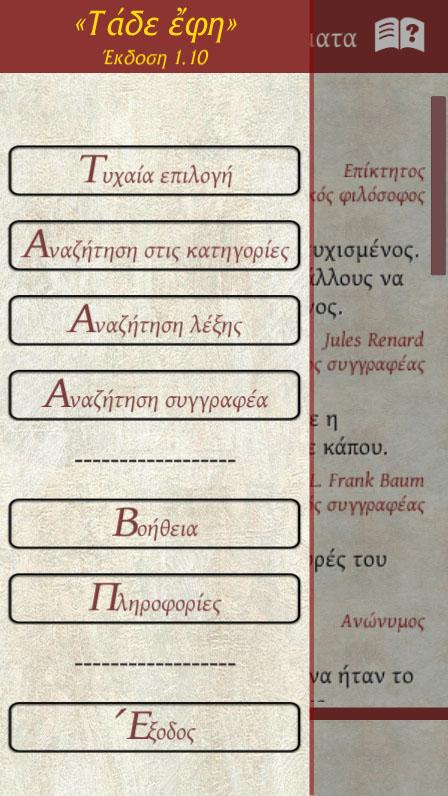 «Τάδε ἔφη»
Έκδοση 1.10
Τυχαία επιλογή
Αναζήτηση στις κατηγορίες
Αναζήτηση λέξης
Αναζήτηση συγγραφέα
Βοήθεια
Πληροφορίες
Έξοδος
Επίκτητος
φιλόσοφος
άλλους να
Jules Renard
συγγραφέας
ε η
κάπου.
L. Frank Baum
συγγραφέας
του
Ανώνυμος
να ήταν το